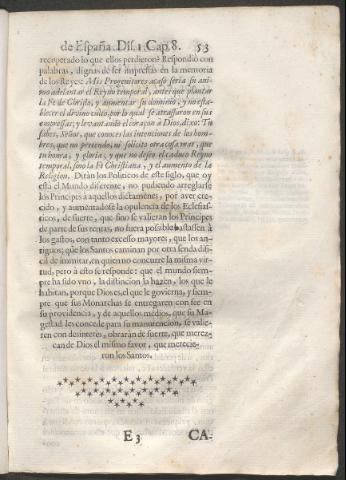 de España. Dis. 1. Cap. 8. 53
recuperado lo que ellos perdieron? Respondiò con
palabras, dignas de ser impressas en la memoria
de los Reyes: Mis Progenitores acaso seria su ani-
mo adelantar el Reyno temporal, antes que plantar
la Fè de Christo, y aumentar su dominio, y no esta-
blecer el divino culto, por lo qual se atrassaron en sus
empressas; y levantando el coraçon à Dios, dixo: Tu
sabes, Señor, que conoces las intenciones de los hom-
bres, que no pretendo, ni solicito otra cosa mas, que
tu honra, y gloria, y que no deseo el caduco Reyno
temporal, sino la Fè Christiana, y el aumento de la
Religion. Diràn los Politicos de este siglo, que oy
està el Mundo diferente, no pudiendo arreglarse
los Principes à aquellos dictamenes, por aver cre-
cido, y aumentadose la opulencia de los Eclesias-
ticos, de suerte, que sino se valieran los Principes
de parte de sus rentas, no fuera possible bastassen à
los gastos, con tanto excesso mayores, que los an-
tiguos; que los Santos caminan por otra senda difi-
cil de immitar, en quien no concurre la misma vir-
tud, pero à esto se responde: que el mundo siem-
pre ha sido uno, la distincion la hazen, los que le
habitan, porque Dios es, el que le govierna, y siem-
pre que sus Monarchas se entregaren con fee en
su providencia, y de aquellos medios, que su Ma-
gestad les concede para su manutencion, se valie-
ren con desinterès, obraràn de suerte, que merez-
can de Dios el mismo favor, que merecie-
ron los Santos.
E 3 CA-